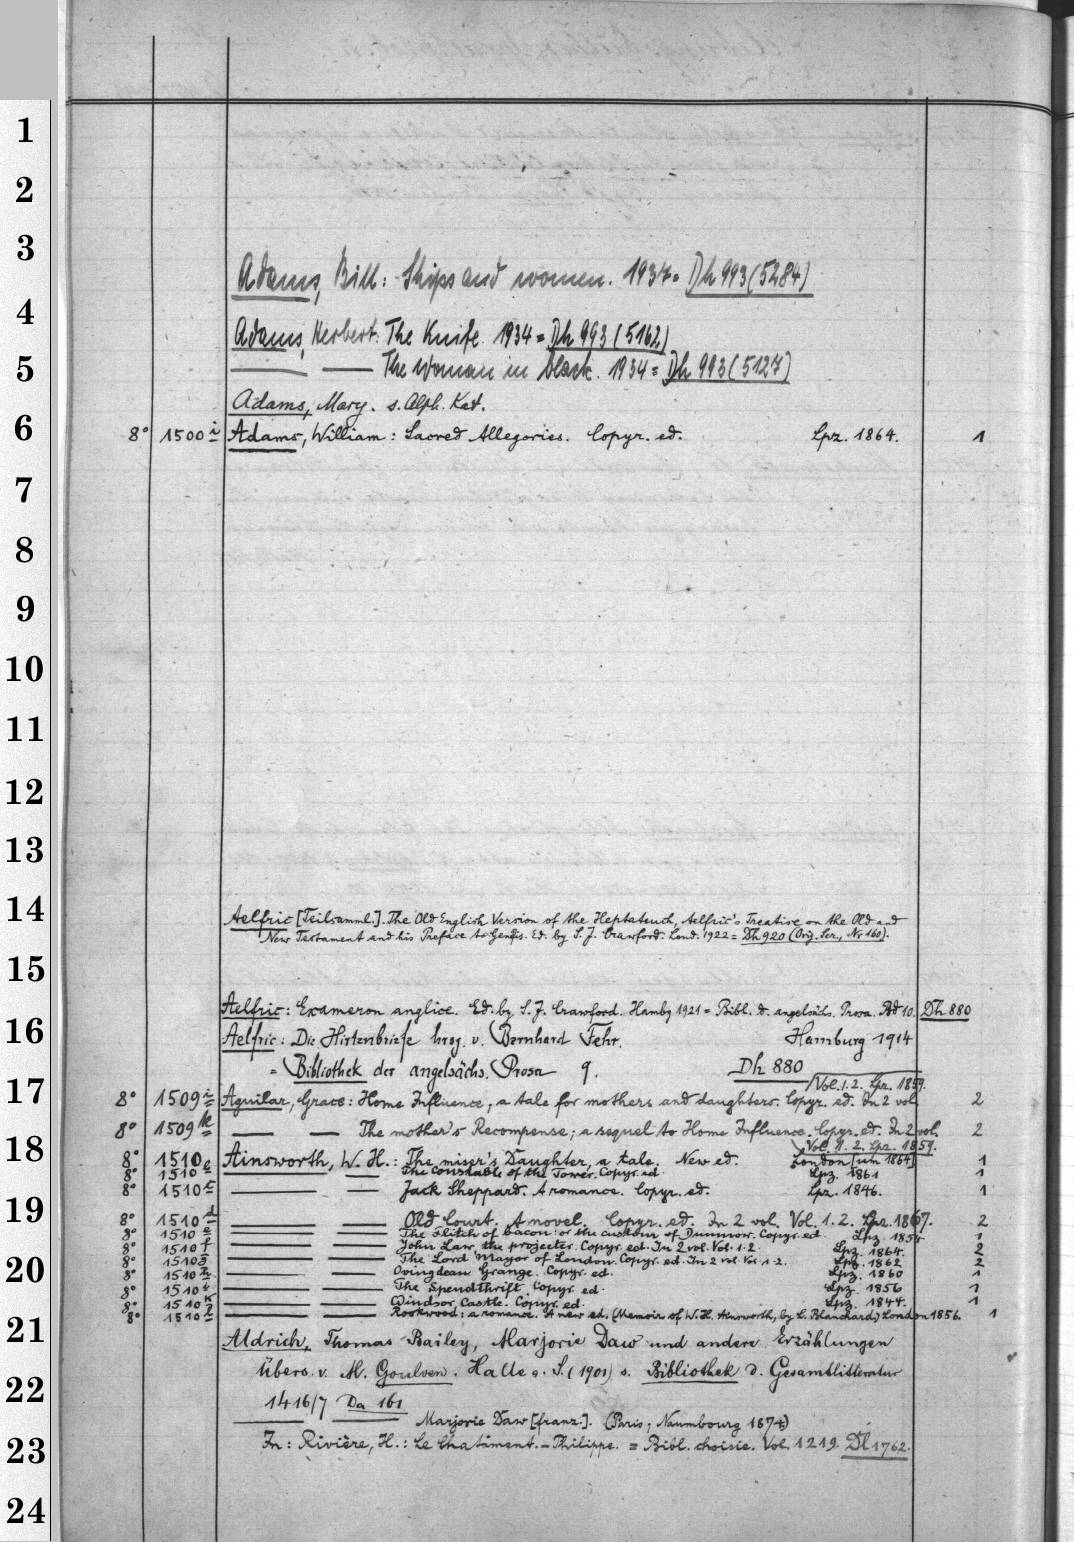 1
2
3
Adams, Bill: Ships and women. 1937 = Dh 993 (5284)
4
Adams, Herbert: The Knife. 1934 = Dh 993 (5162)
5
The woman in black. 1934 = Dh 993 (5127)
Adams, Mary. s. Alph. Kat.
6
8° 1500 i Adams, William: Sacred Allegories. Copyr. ed. Lpz. 1864. 1
7
8
9
10
11
12
13
14
Aelfric [Teilsamml.]. The Old English Version of the Heptateuch, Aelfric's Treatise on the Old and
New Testament and his Preface to Genesis. Ed. by S. J. Crawford. Lond. 1922 = Dh 920 (Orig. Ser., Nr 160).
15
Aelfric: Exameron anglice. Ed. by S. J. Crawford. Hambg 1921 = Bibl. d. angelsächs. Prosa. Bd 10. Dh 880
16
Aelfric: Die Hirtenbriefe hrsg. v. Bernhard Fehr. Hamburg 1914
= Bibliothek der angelsächs. Prosa 9. Dh 880
17
Vol. 1.2. Lpz. 1859.
8° 1509 i Aguilar, Grace: Home Influence, a tale for mothers and daughters. Copyr. ed. In 2 vol. 2
8° 1509 k The mother's Recompense; a sequel to Home Influence. Copyr. ed. In 2 vol. 2
18
Vol. 1. 2. Lpz. 1859.
8° 1510 Ainsworth, W. H.: The miser's Daughter, a tale. New ed. London [um 1864] 1
8° 1510 e The Constable of the Tower. Copyr. ed. Lpz. 1861 1
8° 1510 Jack Sheppard. A romance. Copyr. ed. Lpz. 1846. 1
19
8° 1510 d Old Court. A novel. Copyr. ed. In 2 vol. Vol. 1.2. Lpz. 1867. 2
8° 1510 e The Flitch of bacon or the custom of Dunmow. Copyr. ed. Lpz. 1854 1
8° 1510 f John Law, the projector. Copyr. ed. In 2 vol. Vol. 1-2. Lpz. 1864. 2
8° 1510 g The Lord Mayor of London. Copyr. ed. In 2 vol. Vol. 1-2. Lpz. 1862 2
20
8° 1510 h Ovingdean Grange. Copyr. ed. Lpz. 1860 1
8° 1510 i The Spendthrift. Copyr. ed. Lpz. 1856 1
8° 1510 k Windsor Castle. Copyr. ed. Lpz. 1844. 1
8° 1510 l Rookwood: a romance. A new ed. (Memoir of W. H. Ainsworth, by L. Blanchard) London 1856. 1
21
Aldrich, Thomas Bailey, Marjorie Daw und andere Erzählungen
Übers. v. M. Goulven. Halle a. S. (1901) s. Bibliothek d. Gesamtlitteratur
22
1416/7 Da 161
Marjorie Daw [franz.]. (Paris; Naumbourg 1874)
23
In: Rivière, H.: Le Chatiment. - Philippe. = Bibl. choisie. Vol. 1219. Dl 1762.
24